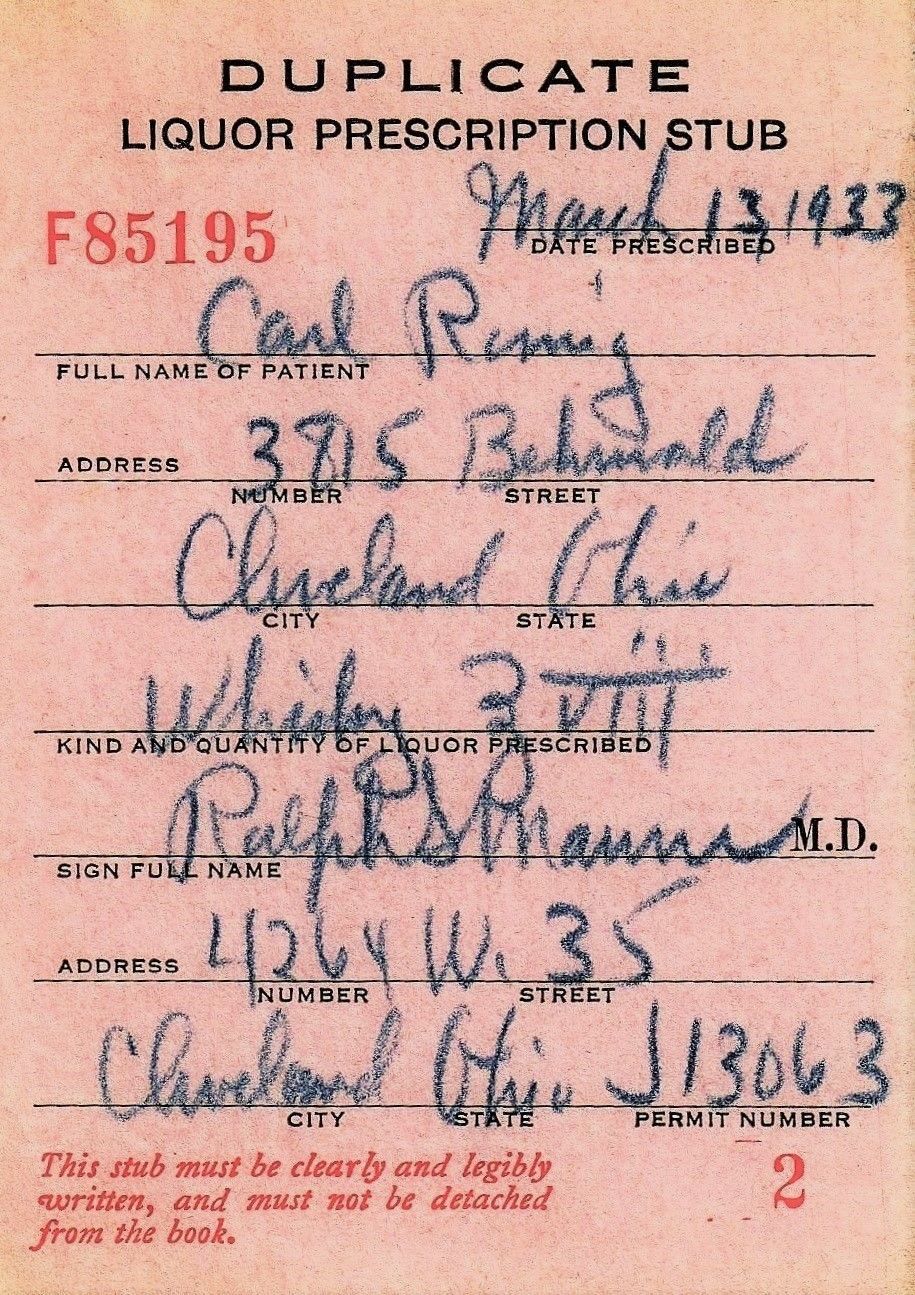 DUPLICATE
LIQUOR PRESCRIPTION STUB
F85195
March 13, 1933
DATE PRESCRIBED
Carl
FULL NAME OF PATIENT
ADDRESS 3815 Behrwald
NUMBER STREET
Cleveland Ohio
CITY STATE
Whiskey ℥ VIII
KIND AND QUANTITY OF LIQUOR PRESCRIBED
Ralph S M.D.
SIGN FULL NAME
ADDRESS 4264 W. 35
NUMBER STREET
Cleveland Ohio J13063
CITY STATE PERMIT NUMBER
This stub must be clearly and legibly
written, and must not be detached
from the book.
2